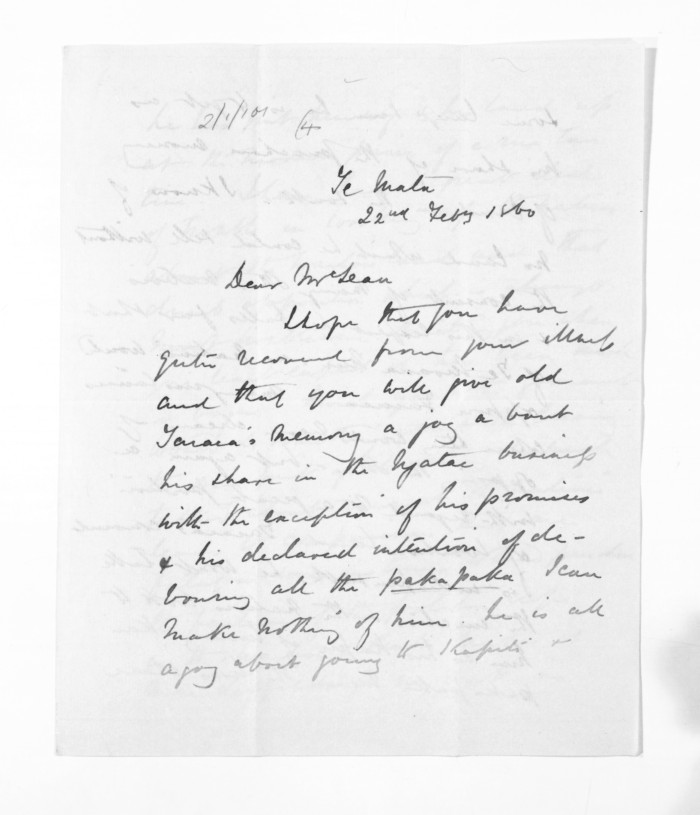 2/1/101 (4
Te Mata
22nd Feby 1860
Dear McLean
I hope that you have
quite recovered from your illness
and that you will give old
Taraia's memory a jog about
his share in the Ngatae business
with the exception of his promises
& his declared intention of de-
vouring all the pakapaka I can
make nothing of him. he is all
agog about going to Kapiti &